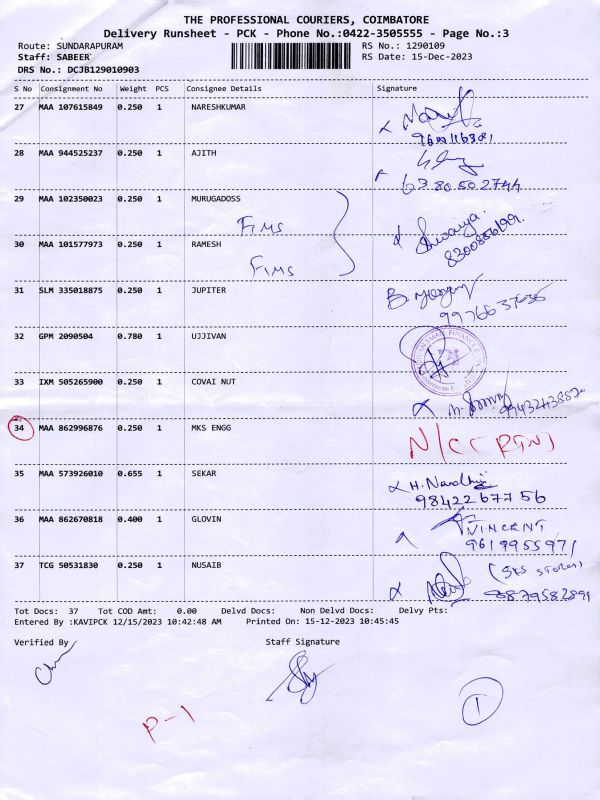 THE PROFESSIONAL COURIERS, COIMBATORE
Delivery Runsheet - PCK - Phone No.:0422-3505555 - Page No.:3
Route: SUNDARAPURAM RS No.: 1290109
Staff: SABEER RS Date: 15-Dec-2023
DRS No.: DCJB129010903
S No Consignment No Weight PCS Consignee Details Signature
27 MAA 107615849 0.250 1 NARESHKUMAR
28 MAA 944525237 0.250 1 AJITH
6380502744
29 MAA 102350023 0.250 1 MURUGADOSS
FIMS
30 MAA 101577973 0.250 1 RAMESH
FIMS
31 SLM 335018875 0.250 1 JUPITER
32 GPM 2090504 0.780 1 UJJIVAN
33 IXM 505265900 0.250 1 COVAI NUT
34 MAA 862996876 0.250 1 MKS ENGG
35 MAA 573926010 0.655 1 SEKAR
9842267756
36 MAA 862670818 0.400 1 GLOVIN VINCENT
9619955971
37 TCG 50531830 0.250 1 NUSAIB (SKS STORES)
Tot Docs: 37 Tot COD Amt: 0.00 Delvd Docs: Non Delvd Docs: Delvy Pts:
Entered By :KAVIPCK 12/15/2023 10:42:48 AM Printed On: 15-12-2023 10:45:45
Verified By Staff Signature
P-1
1